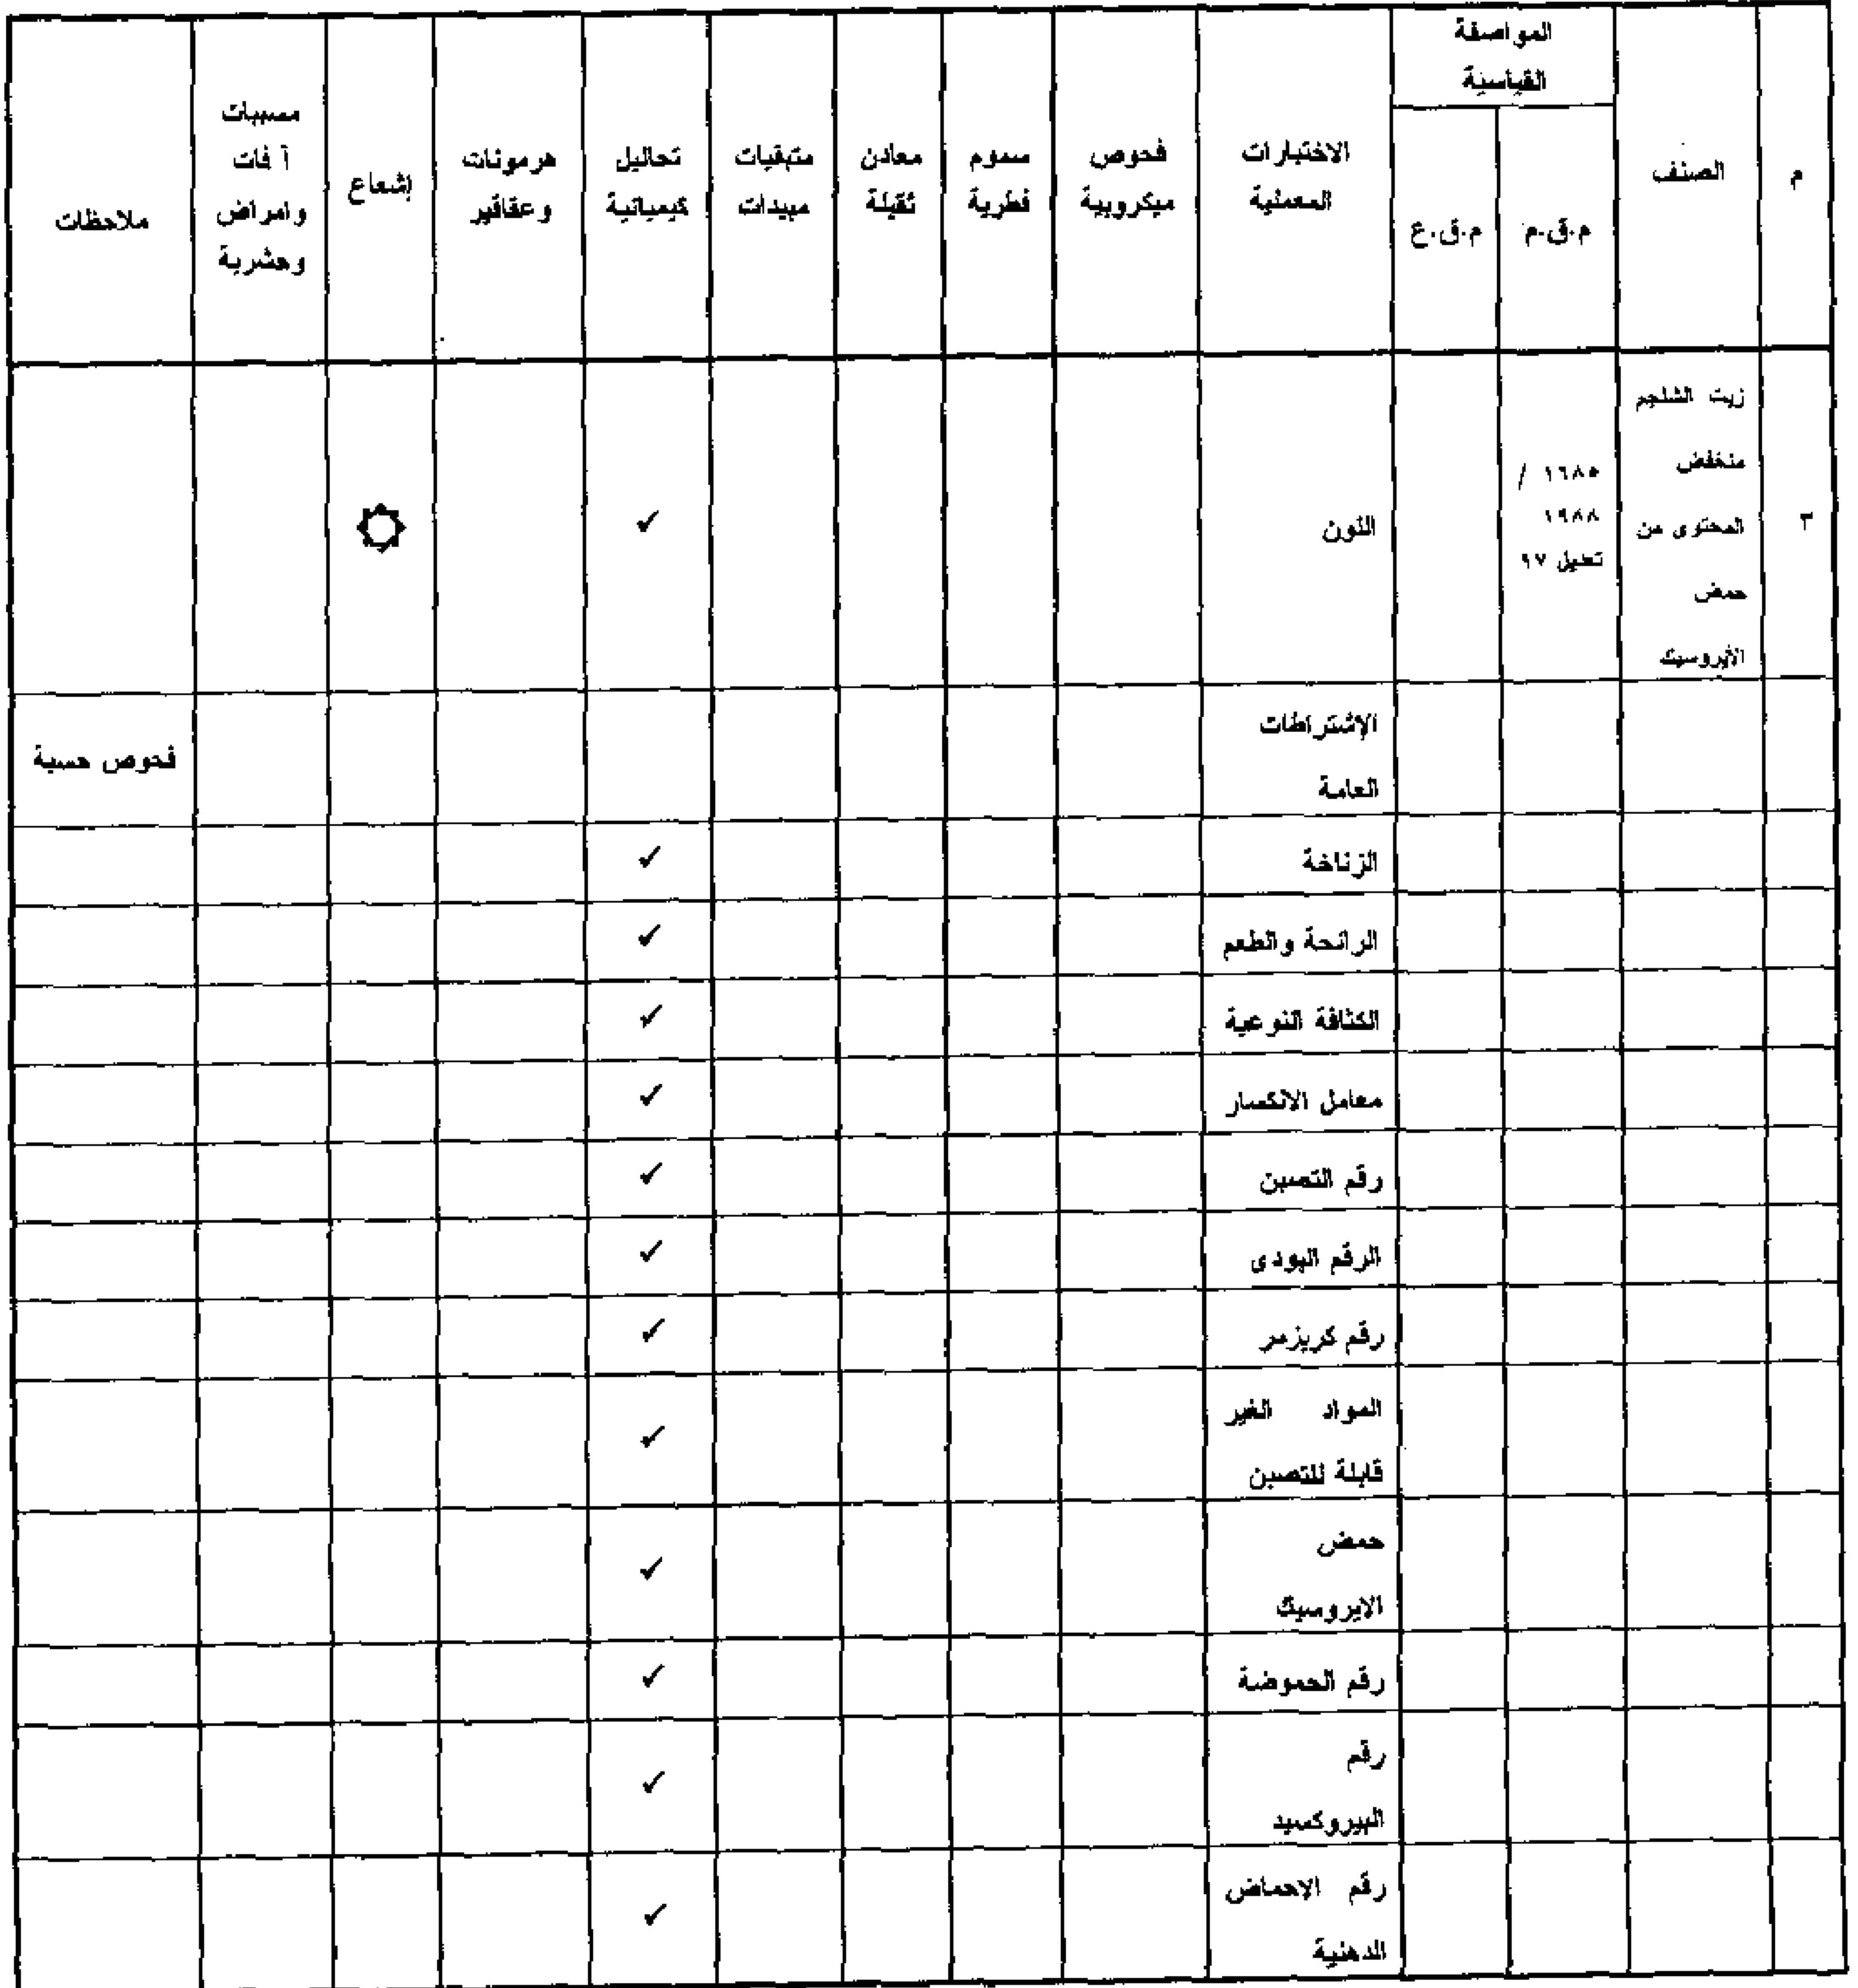 م
الصنف
المواصفة
القياسية
م.ق.م
م.ق.ع
الاختبارات
المعملية
فحوص
ميكروبية
سموم
فطرية
معادن
ثقيلة
متبقيات
مبيدات
تحاليل
كيميائية
هرمونات
وعقاقير
إشعاع
مسببات
آفات
وامراض
وحشرية
ملاحظات
زيت الشلجم
منخفض
المحتوى من
حمض
الأيروسيك
١٦٨٥ /
١٩٨٨
تعديل ٩٧
اللون
✓
الإشتراطات
العامة
فحوص حسية
الزناخة
✓
الرائحة والطعم
✓
الكثافة النوعية
✓
معامل الانكسار
✓
رقم التصبن
✓
الرقم اليودى
✓
رقم كريزمر
✓
المواد الغير
قابلة للتصبن
✓
حمض
الايروسيك
✓
رقم الحموضة
✓
رقم
البيروكسيد
✓
رقم الاحماض
الدهنية
✓